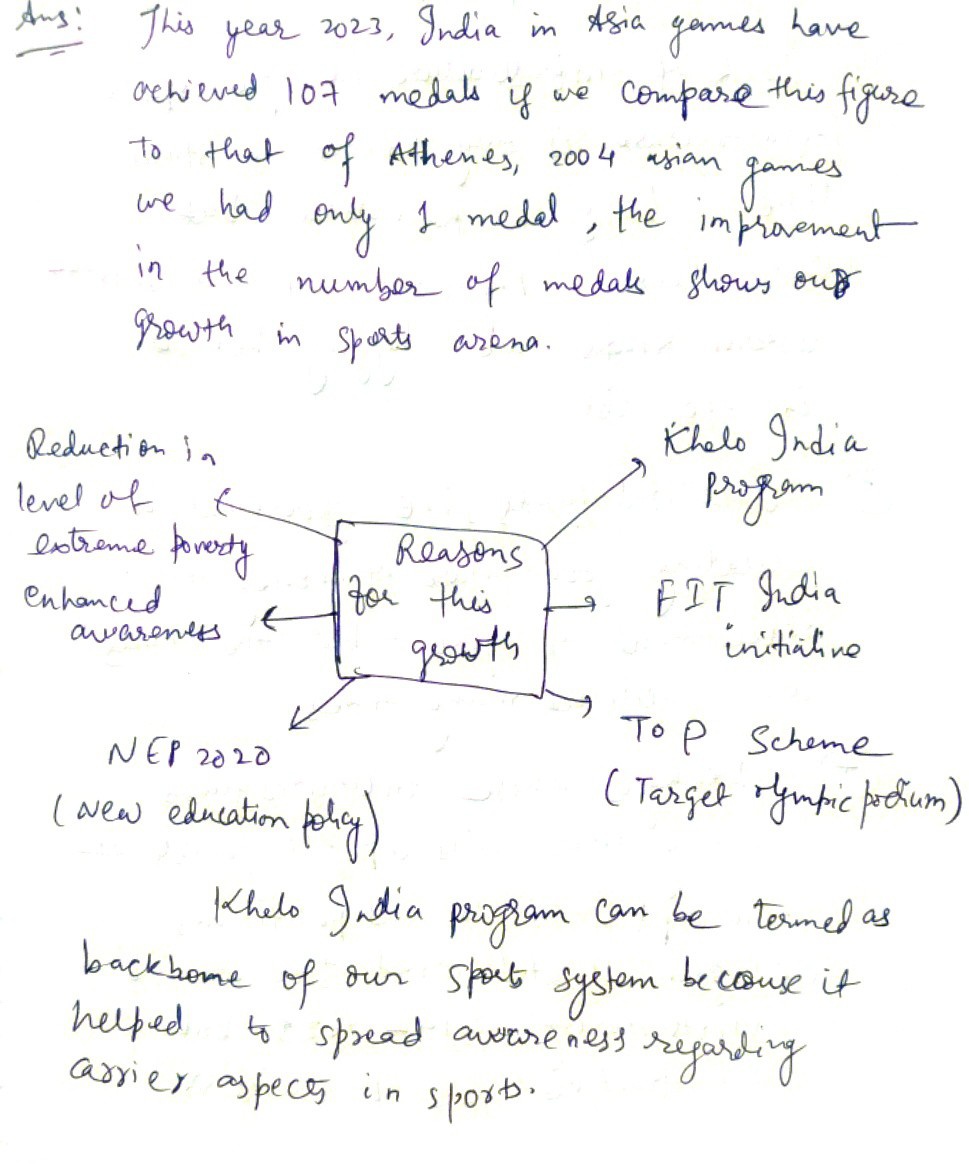 Ans:
This year 2023, India in Asia games have
achieved 107 medals if we compare this figure
to that of Athenes, 2004 asian games
we had only 1 medal, the improvement
in the number of medals shows our
growth in sports arena.
Reduction in
level of
extreme poverty
enhanced
awareness
NEP 2020
(new education policy)
Reasons
for this
growth
Khelo India
program
FIT India
initiative
ToP Scheme
(Target olympic podium)
Khelo India program can be termed as
backbome of our sports system because it
helped to spread awareness regarding
carrier aspects in sports.